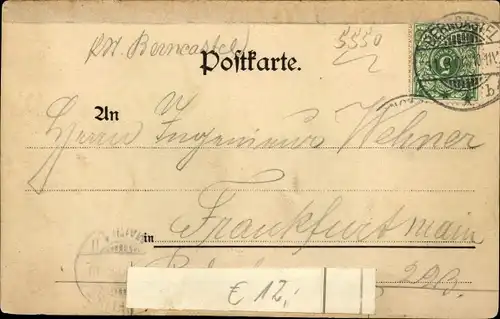 (Krst. Berncastel) 5550
Postkarte.
BERNCASTEL
5
An
Herrn Ingenieur Wehner
in Frankfurt main
29B.
€ 12,-